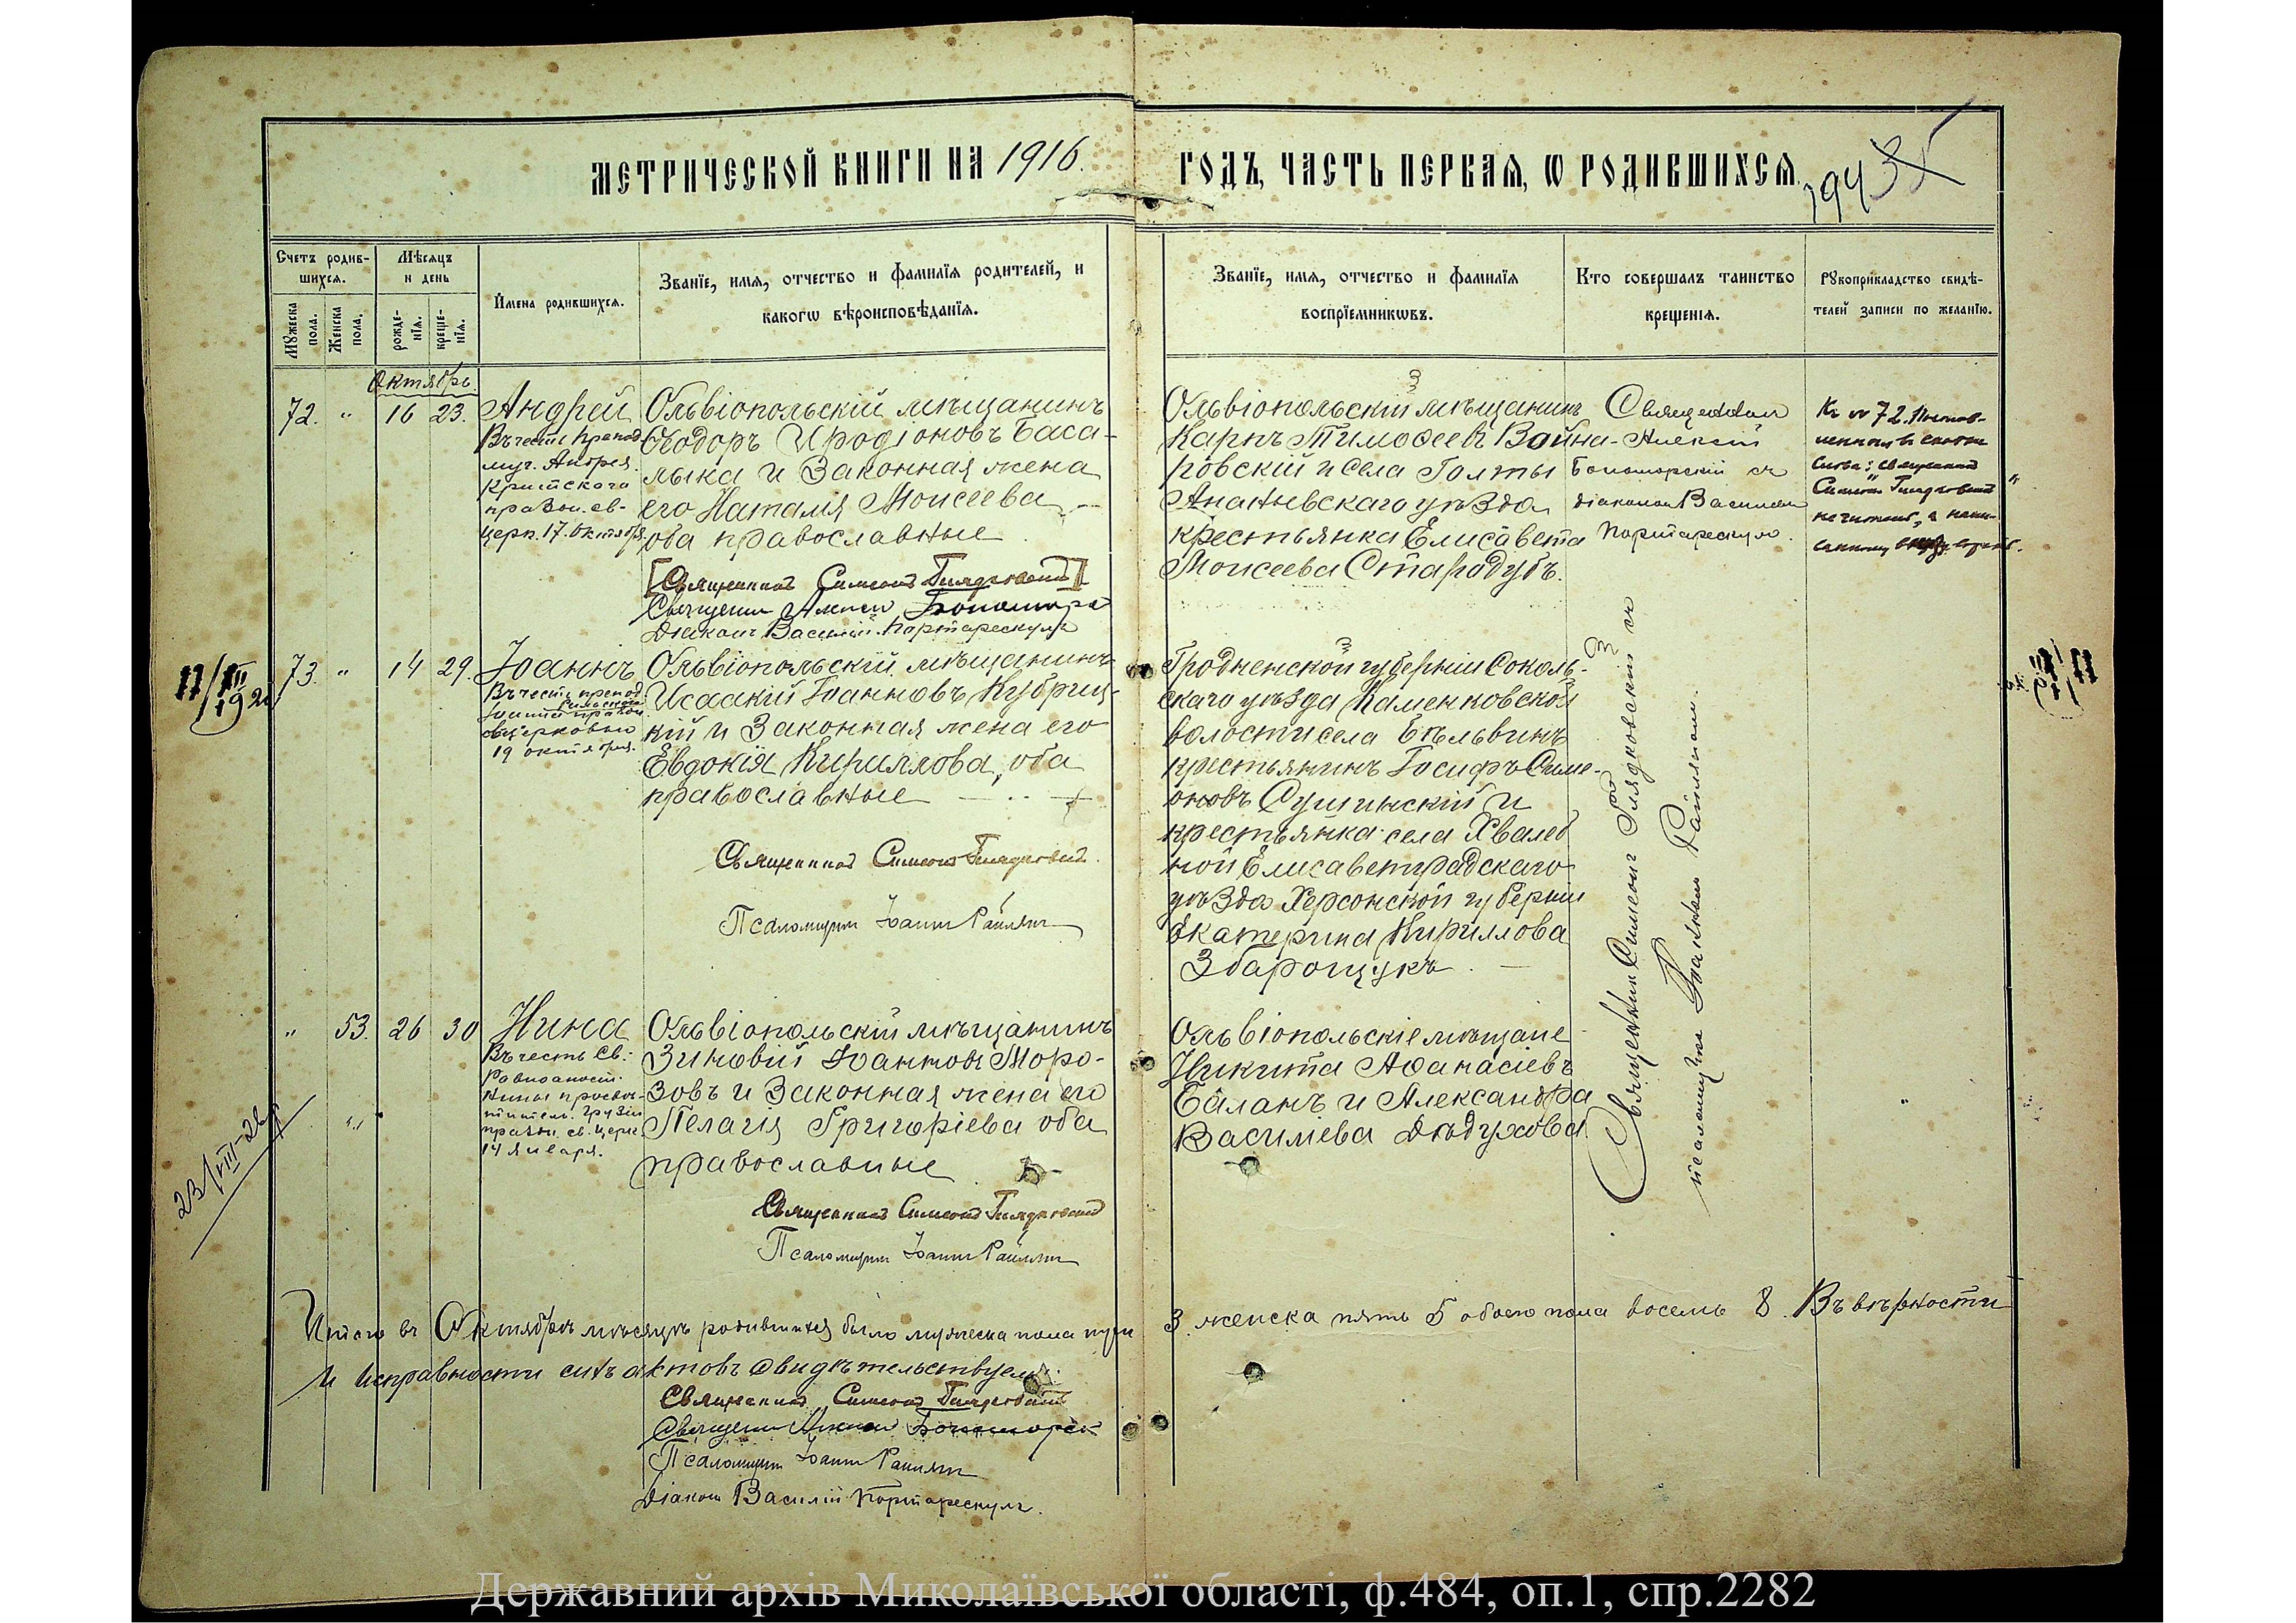 МЕТРИЧЕСКОЙ КНИГИ НА 1916. ГОДЪ, ЧАСТЬ ПЕРВАЯ, Ѡ РОДИВШИХСЯ.
194
Счетъ родив-
шихся.
Мѣсяцъ
и день
Имена родившихся.
Званїе, имя, отчество и фамилїя родителей, и
какогѡ вѣроисповѣданїя.
Званїе, имя, отчество и фамилїя
воспрїемникѡвъ.
Кто совершалъ таинство
крещенїя.
Рꙋкоприкладство свидѣ-
телей записи по желанїю.
Мꙋжеска
пола.
Женска
пола.
рожде-
нїя.
креще-
нїя.
Октябрь
72. " 16 23.
Андрей
Въ честь препод.
муч. Андрея
Критскаго
празн. св.
церк. 17. Октября.
Ольвіопольскій мѣщанинъ
Ѳеодоръ Иродіоновъ Баса-
лыка и законная жена
его Наталія Моисеева
оба православные
Священникъ Симеонъ Глядковскій
Діаконъ Василій Портарескулъ
Ольвіопольскій мѣщанинъ
Карпъ Тимоѳеевъ Война-
ровскій и села Голты
Ананьевскаго уѣзда
крестьянка Елисавета
Моисеева Стародубъ.
Священникъ
Алексій
съ
діакономъ Василіемъ
Портарескуло.
Къ № 72.
Симеонъ Глядковскій"
не читать, а напи-
73. " 14 29.
Іоаннъ
Въ честь препод.
19 октября.
Ольвіопольскій мѣщанинъ
Исаакій Іоанновъ Кубриц-
кій и законная жена его
Евдокія Кириллова, оба
православные
Священникъ Симеонъ Глядковскій.
Псаломщикъ Іоаннъ Раилянъ
Гродненской губерніи Соколь-
скаго уѣзда Каменковской
волости села
крестьянинъ Іосифъ Симе-
оновъ Сушинскій и
крестьянка села Хвалеб
ной Елисаветградскаго
уѣзда Херсонской губерніи
Екатерина Кириллова
Збарощукъ.
Священникъ Симеонъ Глядковскій съ
псаломщикомъ Іоанномъ Раиляномъ.
" 53. 26 30
Нина
Въ честь св.
Равноапост.
Нины просвѣ-
тител. Грузіи
празн. св. церк.
14 января.
Ольвіопольскій мѣщанинъ
Зиновій Іоанновъ Моро-
зовъ и законная жена его
Пелагія Григоріева оба
православные
Священникъ Симеонъ Глядковскій
Псаломщикъ Іоаннъ Раилянъ
Ольвіопольскіе мѣщане
Никита Аѳанасіевъ
Баланъ и Александра
Василіева Дѣдухова.
23/VIII-26
Итого въ Октябрѣ мѣсяцѣ родившихся было мужеска пола три 3. женска пять 5 обоего пола восемь 8. Въ вѣрности
и исправности сихъ актовъ свидѣтельствуемъ:
Священникъ Симеонъ Глядковскій
Псаломщикъ Іоаннъ Раилянъ
Діаконъ Василій Портарескулъ.
Державний архів Миколаївської області, ф.484, оп.1, спр.2282